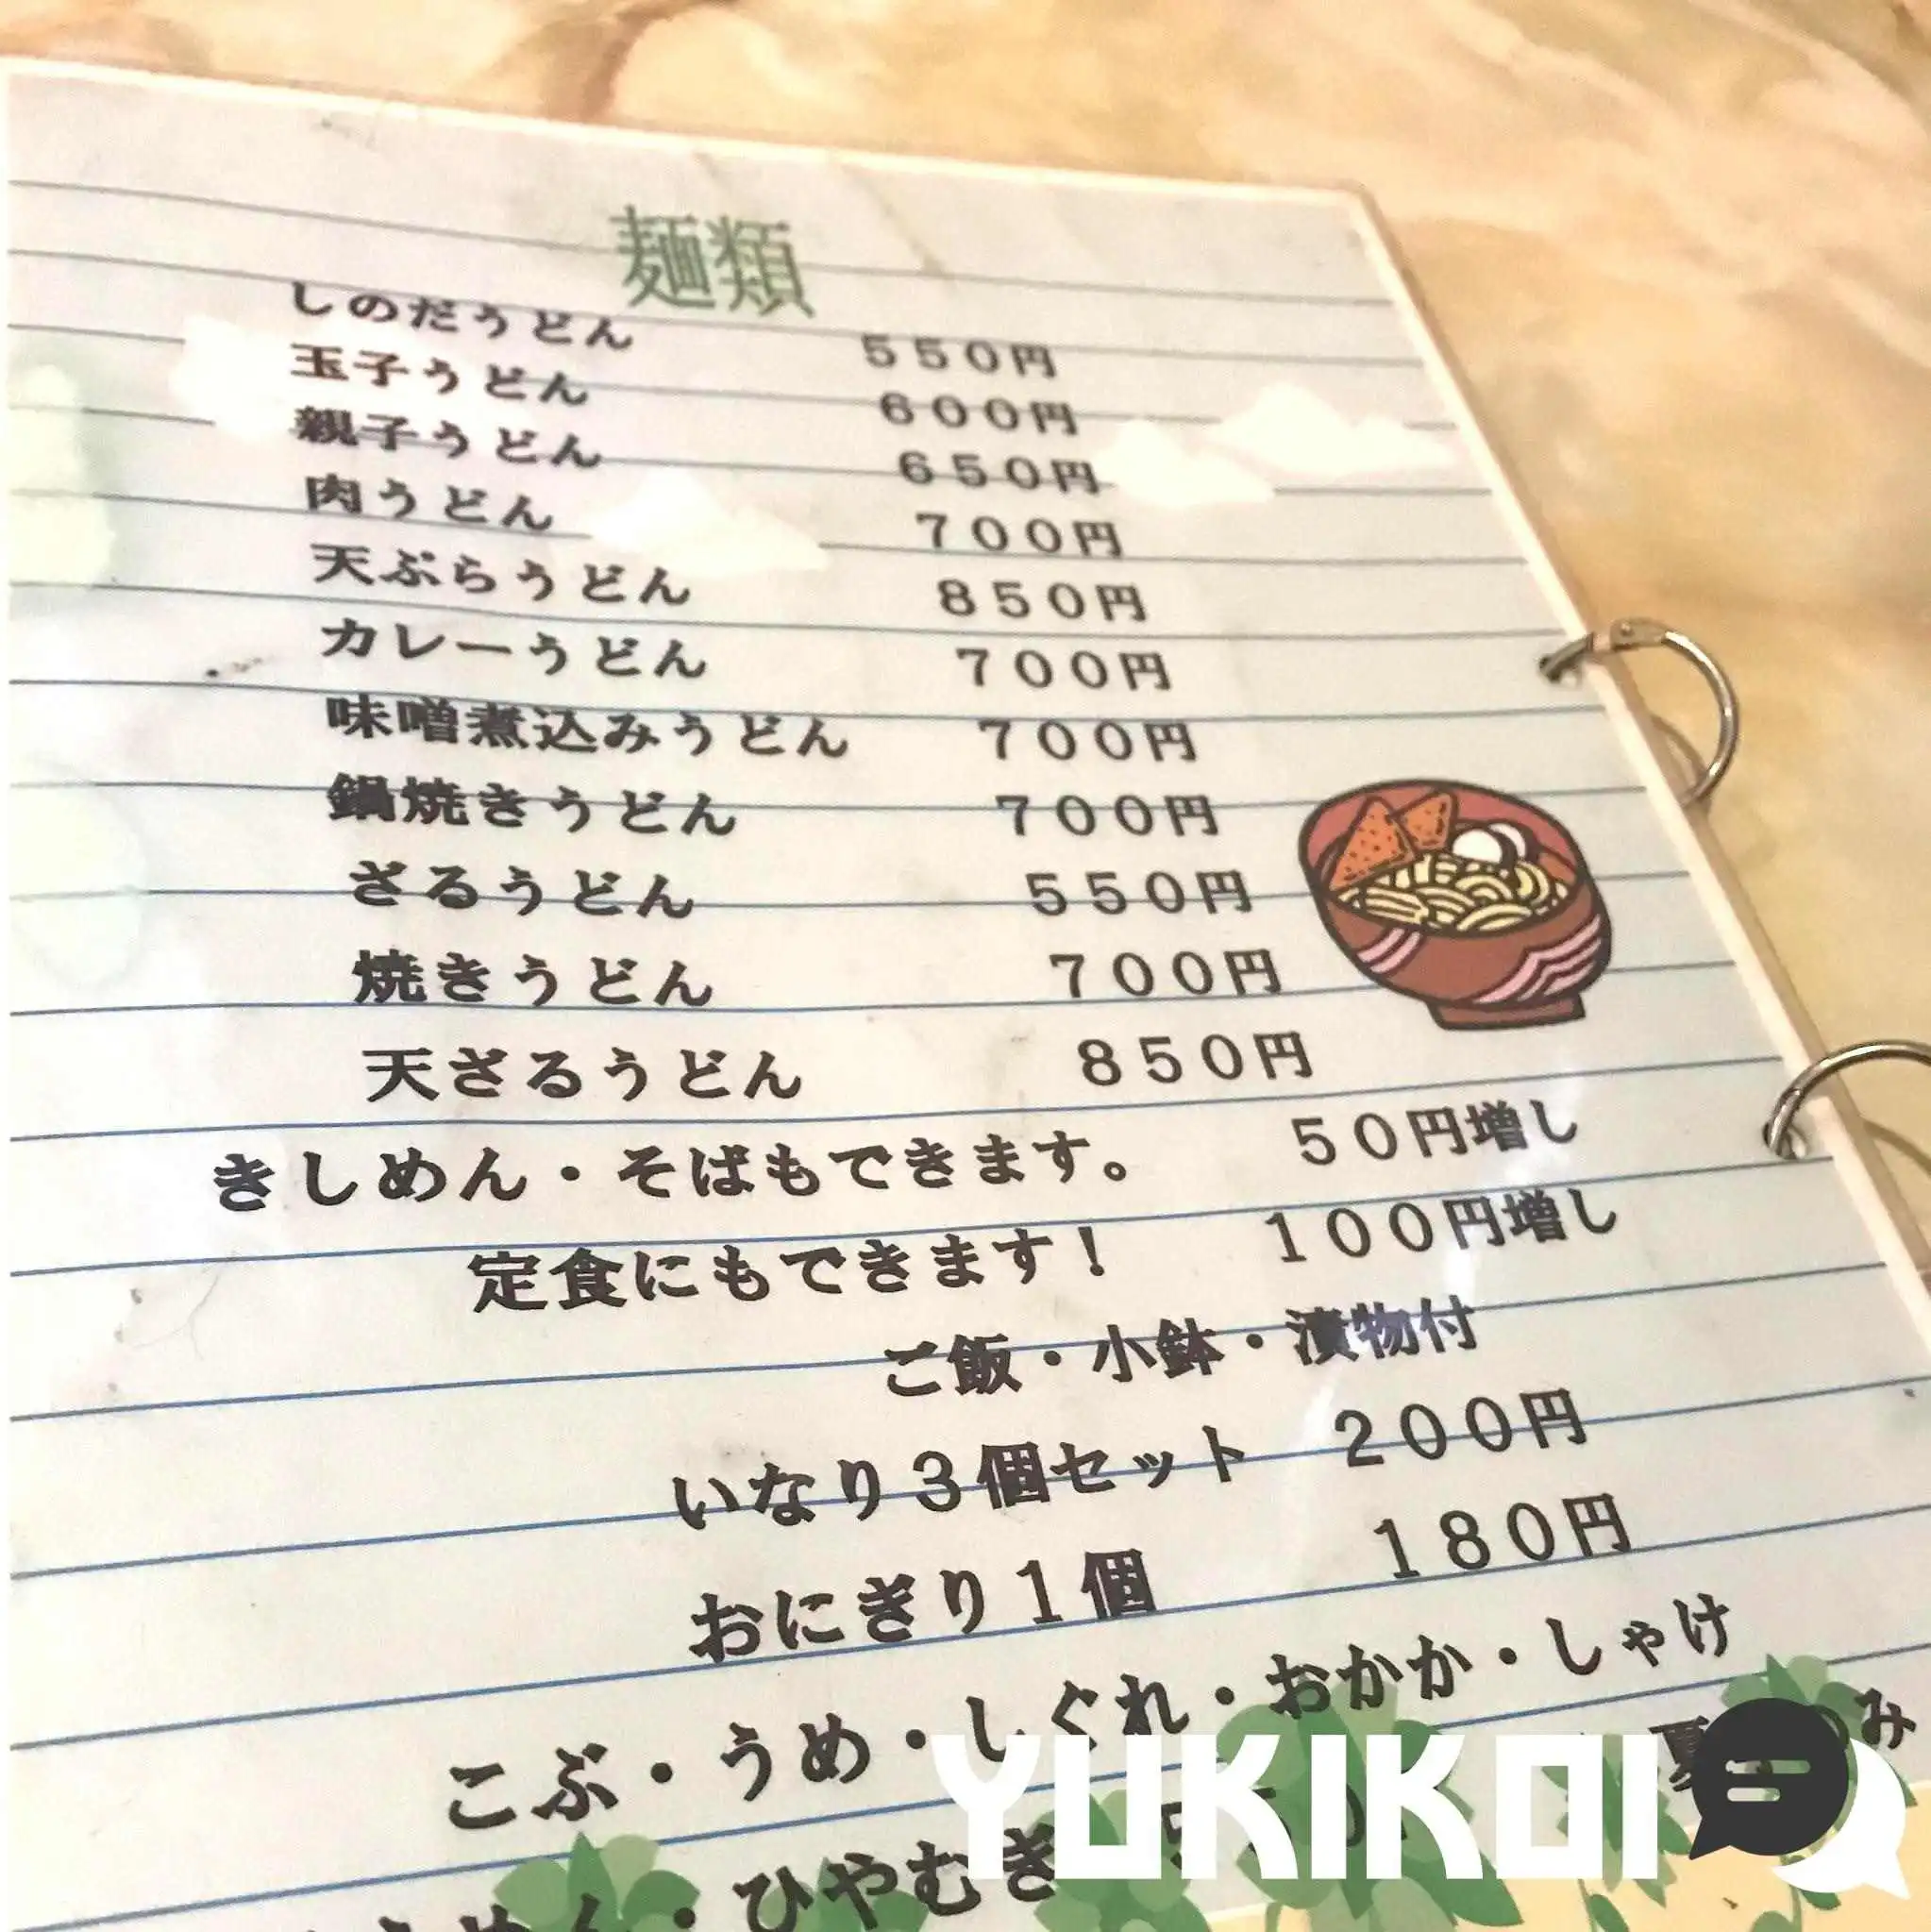 麺類
しのだうどん 550円
玉子うどん 600円
親子うどん 650円
肉うどん 700円
天ぷらうどん 850円
カレーうどん 700円
味噌煮込みうどん 700円
鍋焼きうどん 700円
ざるうどん 550円
焼きうどん 700円
天ざるうどん 850円
きしめん・そばもできます。 50円増し
定食にもできます！ 100円増し
ご飯・小鉢・漬物付
いなり3個セット 200円
おにぎり1個 180円
こぶ・うめ・しぐれ・おかか・しゃけ
夏 み
めん・ひやむぎ
YUKIKOI